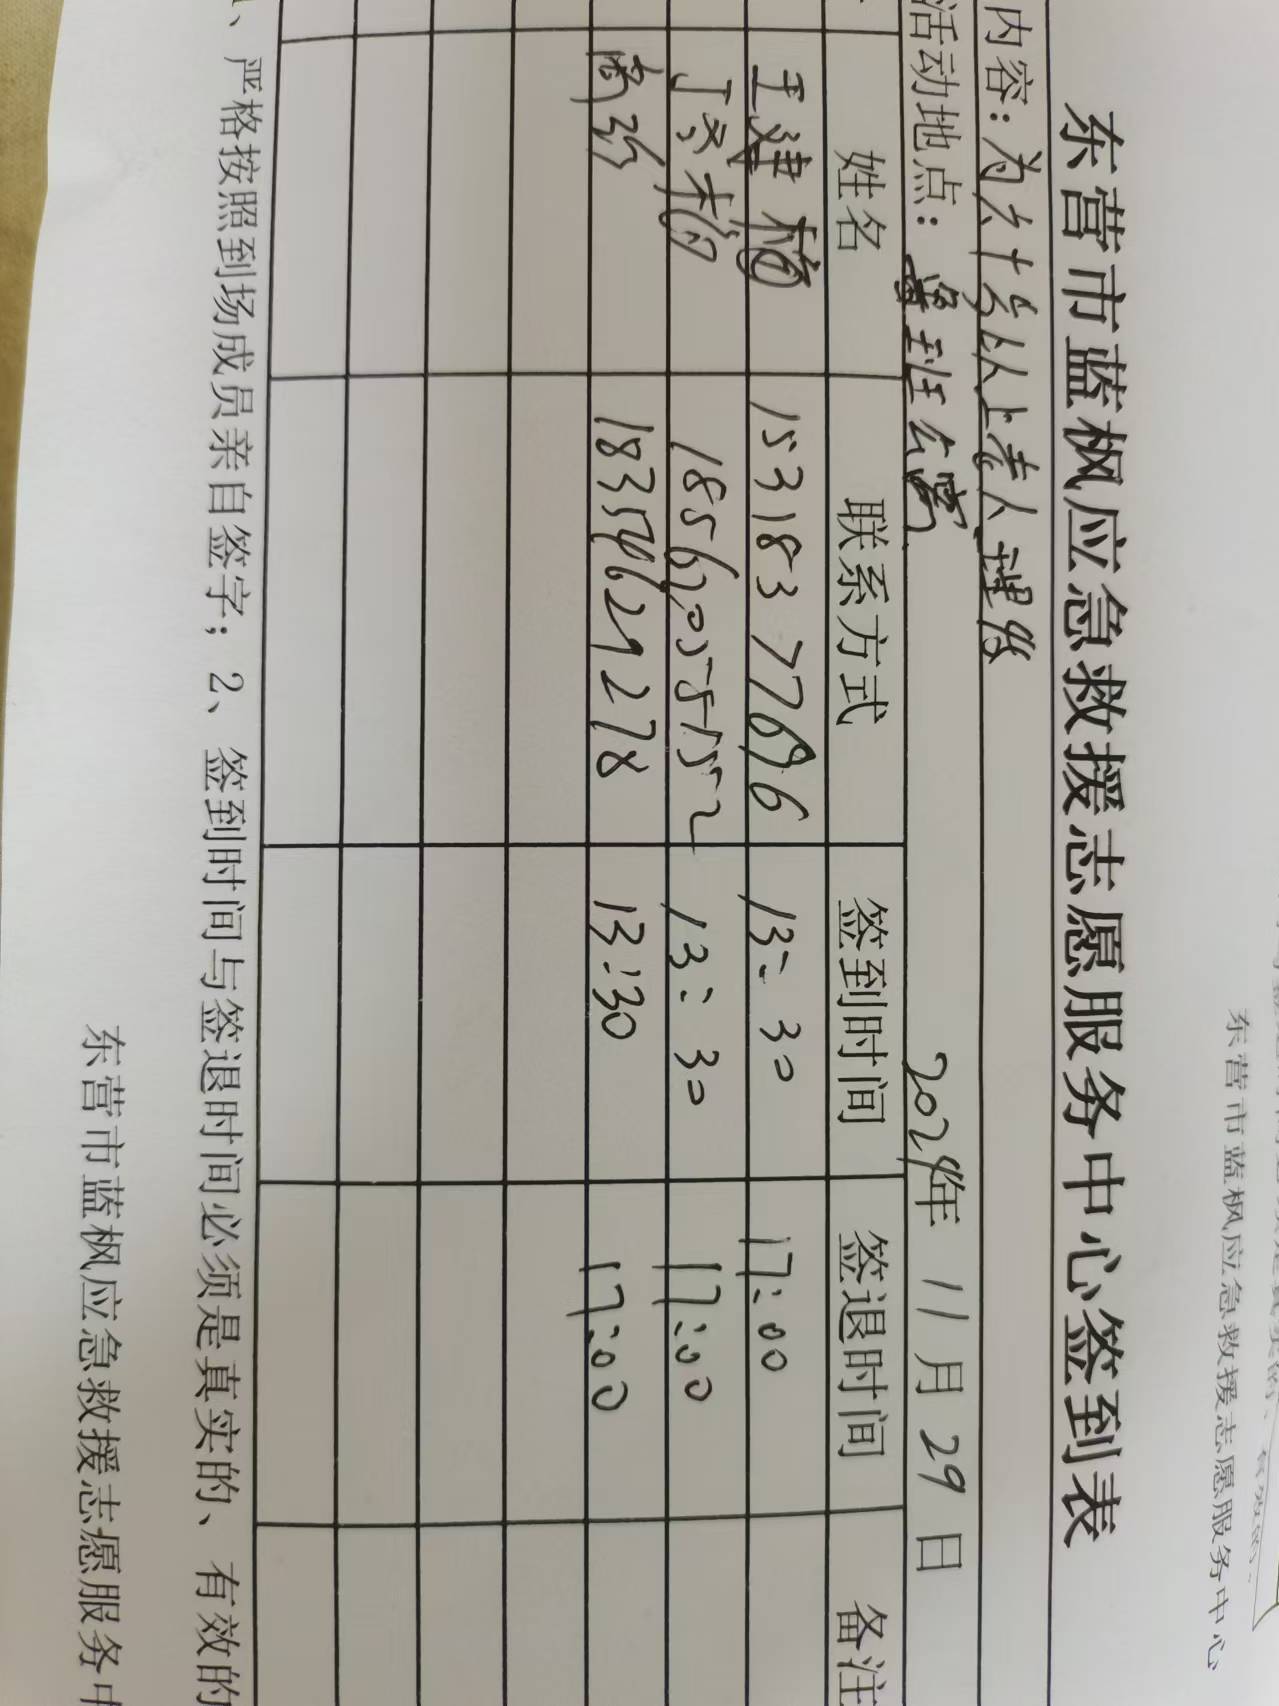 东营市蓝枫应急救援志愿服务中心
东营市蓝枫应急救援志愿服务中心签到表
内容：为六十岁以上老人理发
活动地点： 公寓 2024年 11月 29日
姓名 联系方式 签到时间 签退时间 备注
王建 15318377696 13:30 17:00
13:30 17:00
18354629278 13:30 17:00
1、严格按照到场成员亲自签字；2、签到时间与签退时间必须是真实的、有效的
东营市蓝枫应急救援志愿服务中